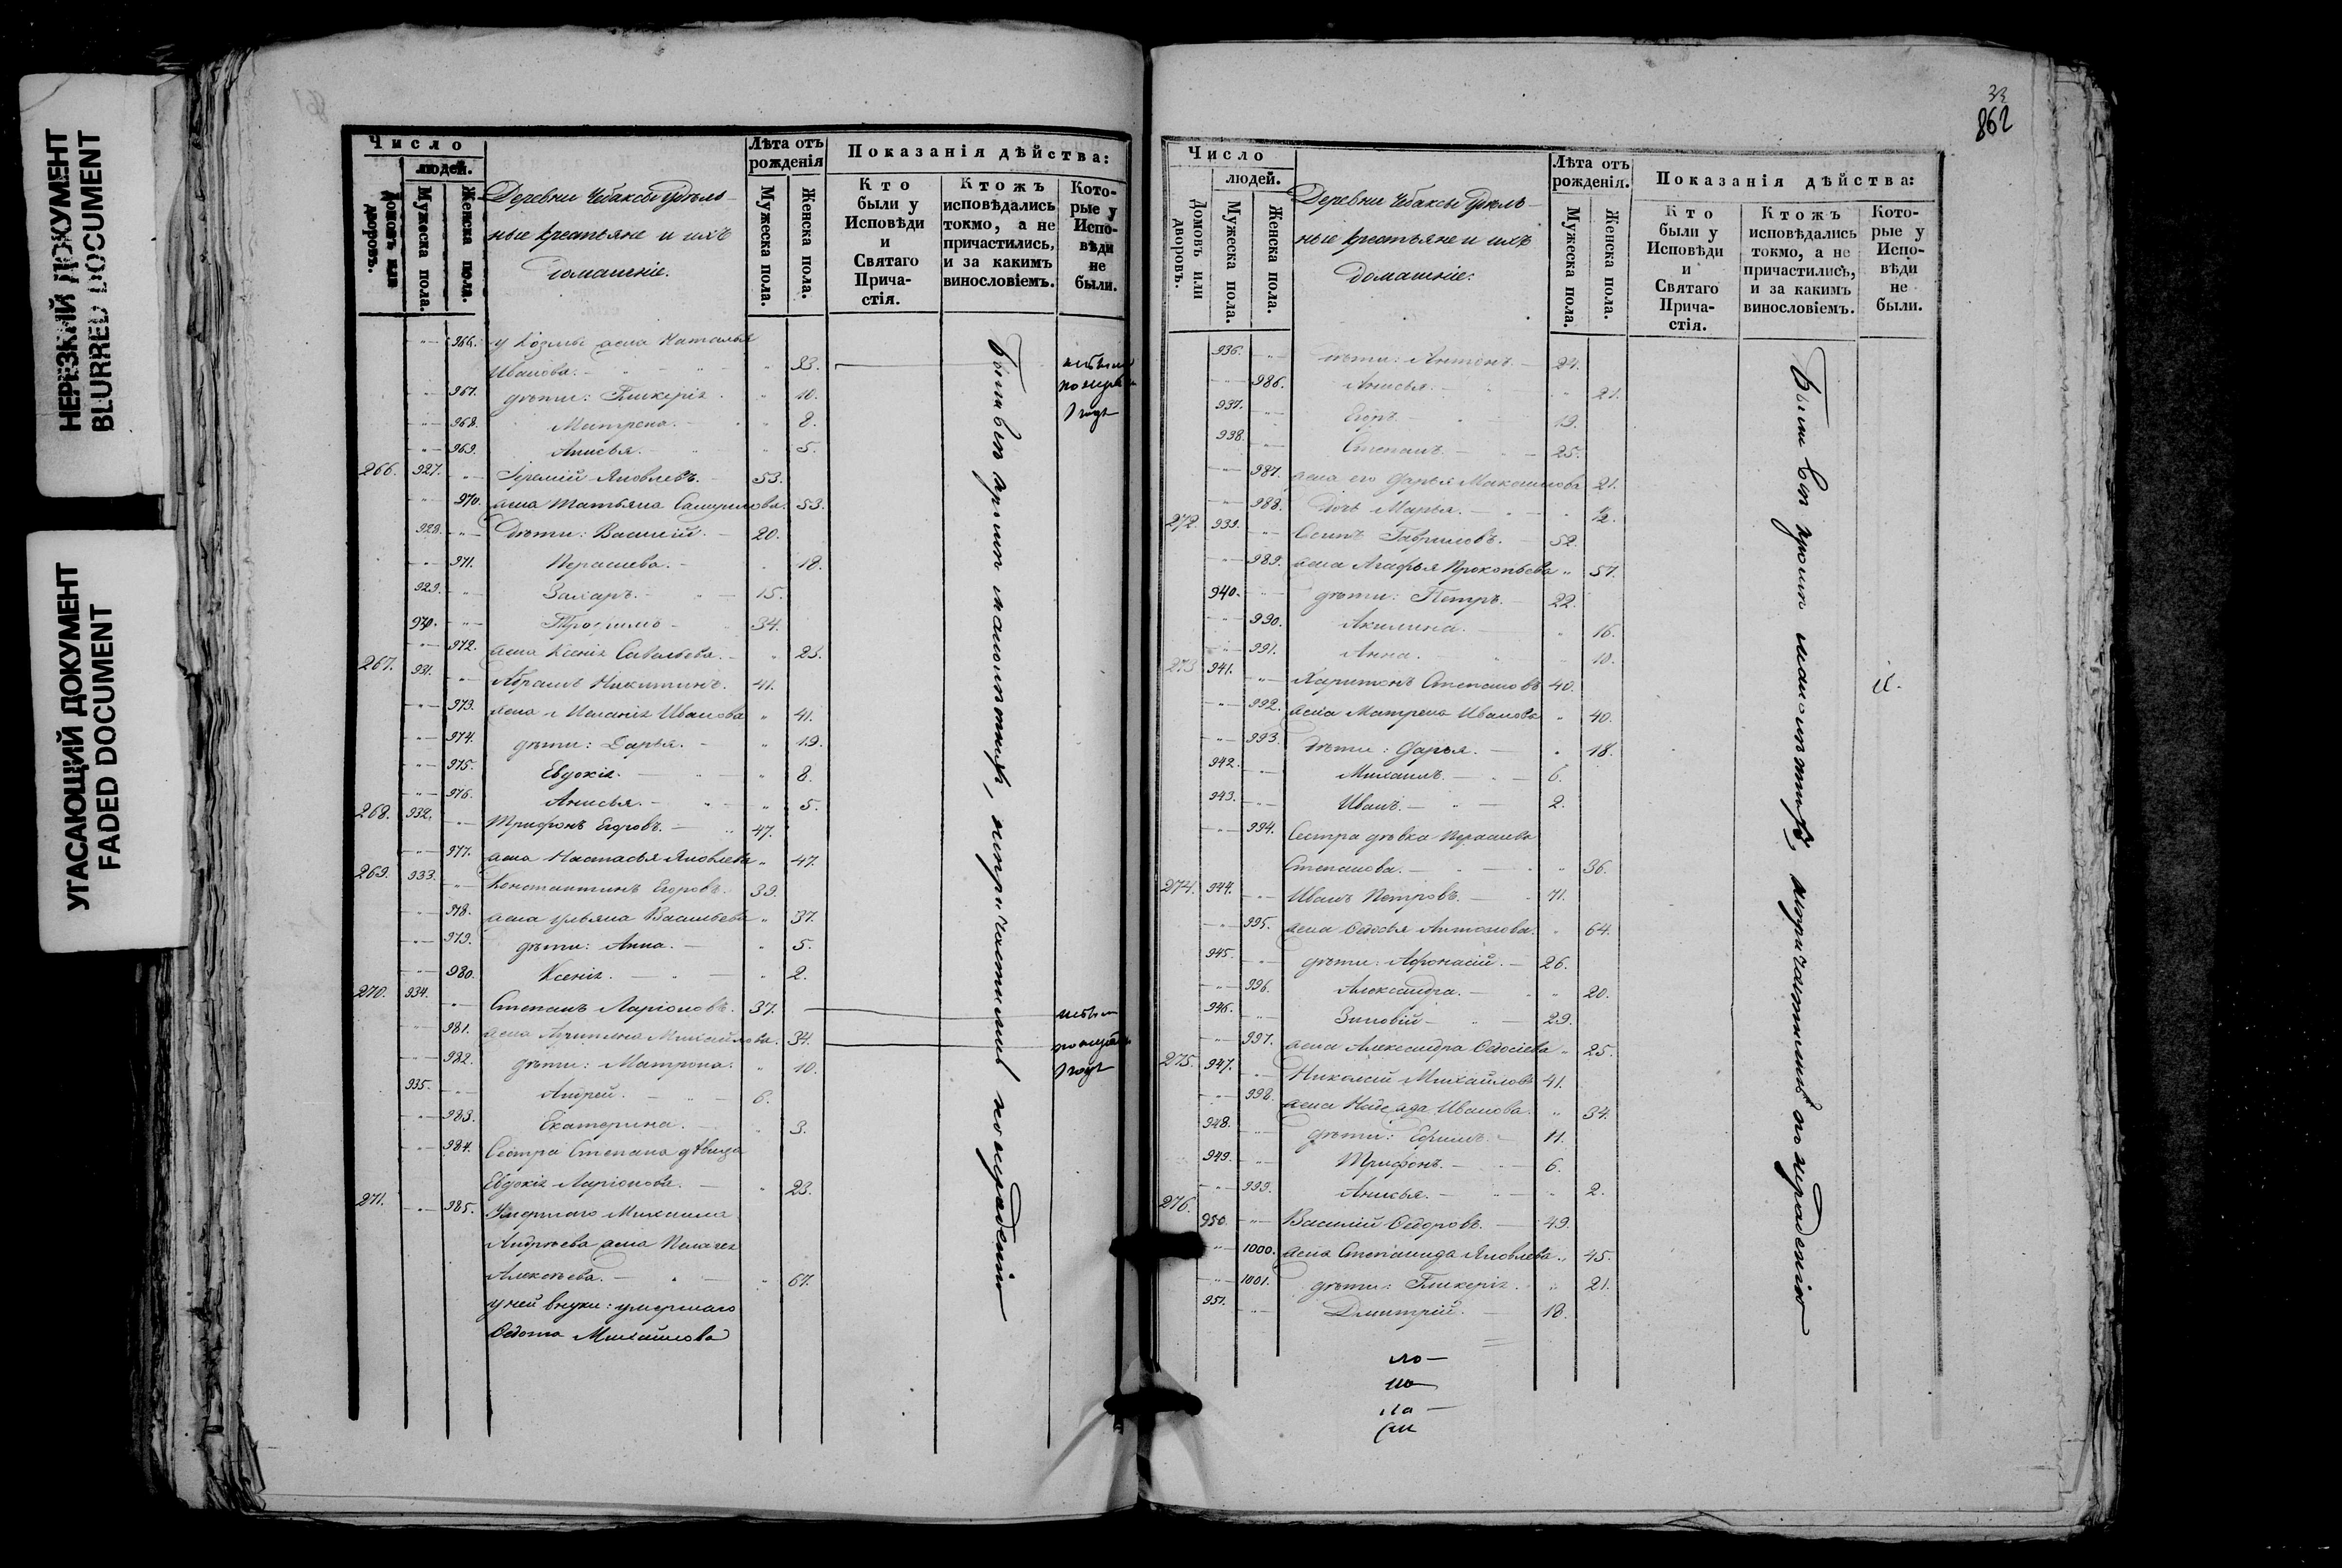 НЕРЕЗКИЙ ДОКУМЕНТ
BLURRED DOCUMENT
УГАСАЮЩИЙ ДОКУМЕНТ
FADED DOCUMENT
Число
людей.
Домовъ или дворовъ.
Мужеска пола.
Женска пола.
Деревни Чебаксы удѣль-
ные крестьяне и ихъ
домашніе.
Лѣта отъ рожденія
Мужеска пола.
Женска пола.
Показанія дѣйства:
Кто были у Исповѣди и Святаго Прича-стія.
Ктожъ исповѣдались токмо, а не причастились, и за какимъ винословіемъ.
Кото-рые у Испо-вѣди не были.
966. у Козмы жена Наталья
Иванова. 33.
967. дѣти: Гликерія. 10.
968. Матрена. 8.
969. Анисья. 5.
266. 927. Іеремій Яковлевъ. 53.
970. жена Татьяна 53.
928. Дѣти: Василій. 20.
971. Параскева. 18.
929. Захаръ. 15.
930. Трофимъ 34.
972. жена Ксенія Савельева. 23.
267. 931. Абрамъ Никитинъ. 41.
973. жена Меланія Иванова 41.
974. дѣти: Дарья. 19.
975. Евдокія. 8.
976. Анисья. 5.
268. 932. Трифонъ Егоровъ. 47.
977. жена Настасья Яковлева 47.
269. 933. Константинъ Егоровъ. 39.
978. жена Ульяна Васильева 37.
979. дѣти: Анна. 5.
980. Ксенія. 2.
270. 934. Степанъ Ларіоновъ. 37.
981. жена Михайлова. 34.
982. дѣти: Матрона. 10.
935. Андрей. 6.
983. Екатерина. 3.
984. Сестра Степана дѣвица
Евдокія Ларіонова. 23.
271. 985. Умершаго Михаила
Андреева жена Пелагея
Алексѣева. 67.
у ней внуки: умершаго
Федота Михайлова
Были вси кромѣ малолѣтнихъ, непричастились по нерадѣнію
862
Число
людей.
Домовъ или дворовъ.
Мужеска пола.
Женска пола.
Деревни Чебаксы удѣль-
ные крестьяне и ихъ
домашніе.
Лѣта отъ рожденія.
Мужеска пола.
Женска пола.
Показанія дѣйства:
Кто были у Исповѣди и Святаго Прича-стія.
Ктожъ исповѣдались токмо, а не причастились, и за какимъ винословіемъ.
Кото-рые у Испо-вѣди не были.
936. дѣти: Антонъ 24.
986. Анисья. 21.
937. Егоръ 19.
938. Степанъ. 25.
987. жена его Дарья Максимова 21.
988. дочь Марья. ½.
272. 939. Осипъ Гавриловъ. 52.
989. жена Агафья Прокопьева 57.
940. дѣти: Петръ. 22.
990. Акилина. 16.
991. Анна. 10.
273. 941. Харитонъ Степановъ 40.
992. жена Матрена Иванова 40.
993. Дѣти: Дарья. 18.
942. Михаилъ. 6.
943. Иванъ. 2.
994. Сестра дѣвка Параскева
Степанова. 36.
274. 944. Иванъ Петровъ. 71.
995. жена Федосья Антонова. 64.
945. дѣти: Афонасій. 26.
996. Александра. 20.
946. Зиновій 29.
997. жена Александра Федосіева 25.
275. 947. Николай Михайловъ 41.
998. жена Надежда Иванова. 34.
948. дѣти: Ефимъ. 11.
949. Трифонъ. 6.
999. Анисья. 2.
276. 950. Василій Федоровъ. 49.
1000. жена Степанида Яковлева. 45.
1001. дѣти: Гликерія. 21.
951. Дмитрій. 18.
Были вси кромѣ малолѣтнихъ, непричастились по нерадѣнію